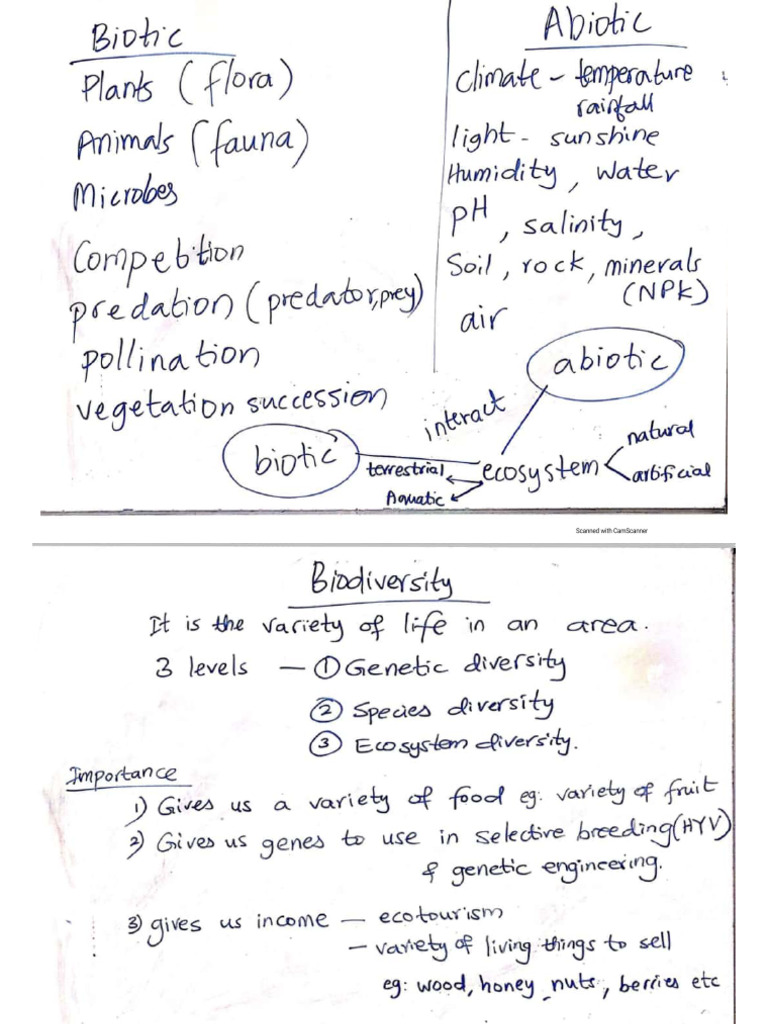 Biotic
Plants (flora)
Animals (fauna)
Microbes
Competition
predation (predator, prey)
pollination
vegetation succession
Abiotic
Climate - temperature
rainfall
light - sunshine
Humidity, water
pH, salinity,
Soil, rock, minerals
(NPK)
air
abiotic
interact
biotic
terrestrial
Aquatic
ecosystem
natural
artificial
Scanned with CamScanner
Biodiversity
It is the variety of life in an area.
3 levels — ① Genetic diversity
② Species diversity
③ Ecosystem diversity.
Importance
1) Gives us a variety of food eg: variety of fruit
2) Gives us genes to use in selective breeding (HYV)
& genetic engineering.
3) gives us income — ecotourism
— variety of living things to sell
eg: wood, honey, nuts, berries etc